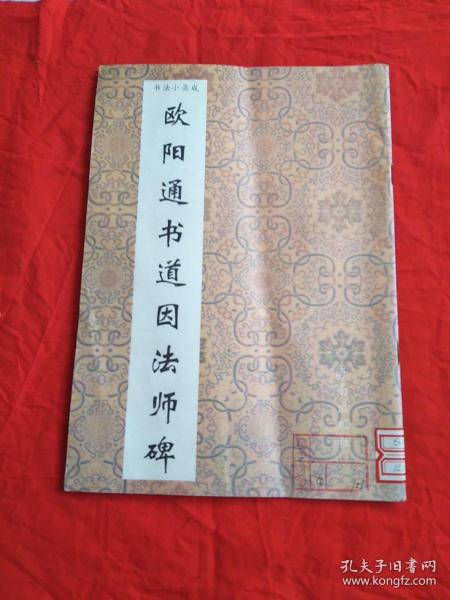 书法小集成
欧阳通书道因法师碑
孔夫子旧书网
www.kongfz.com